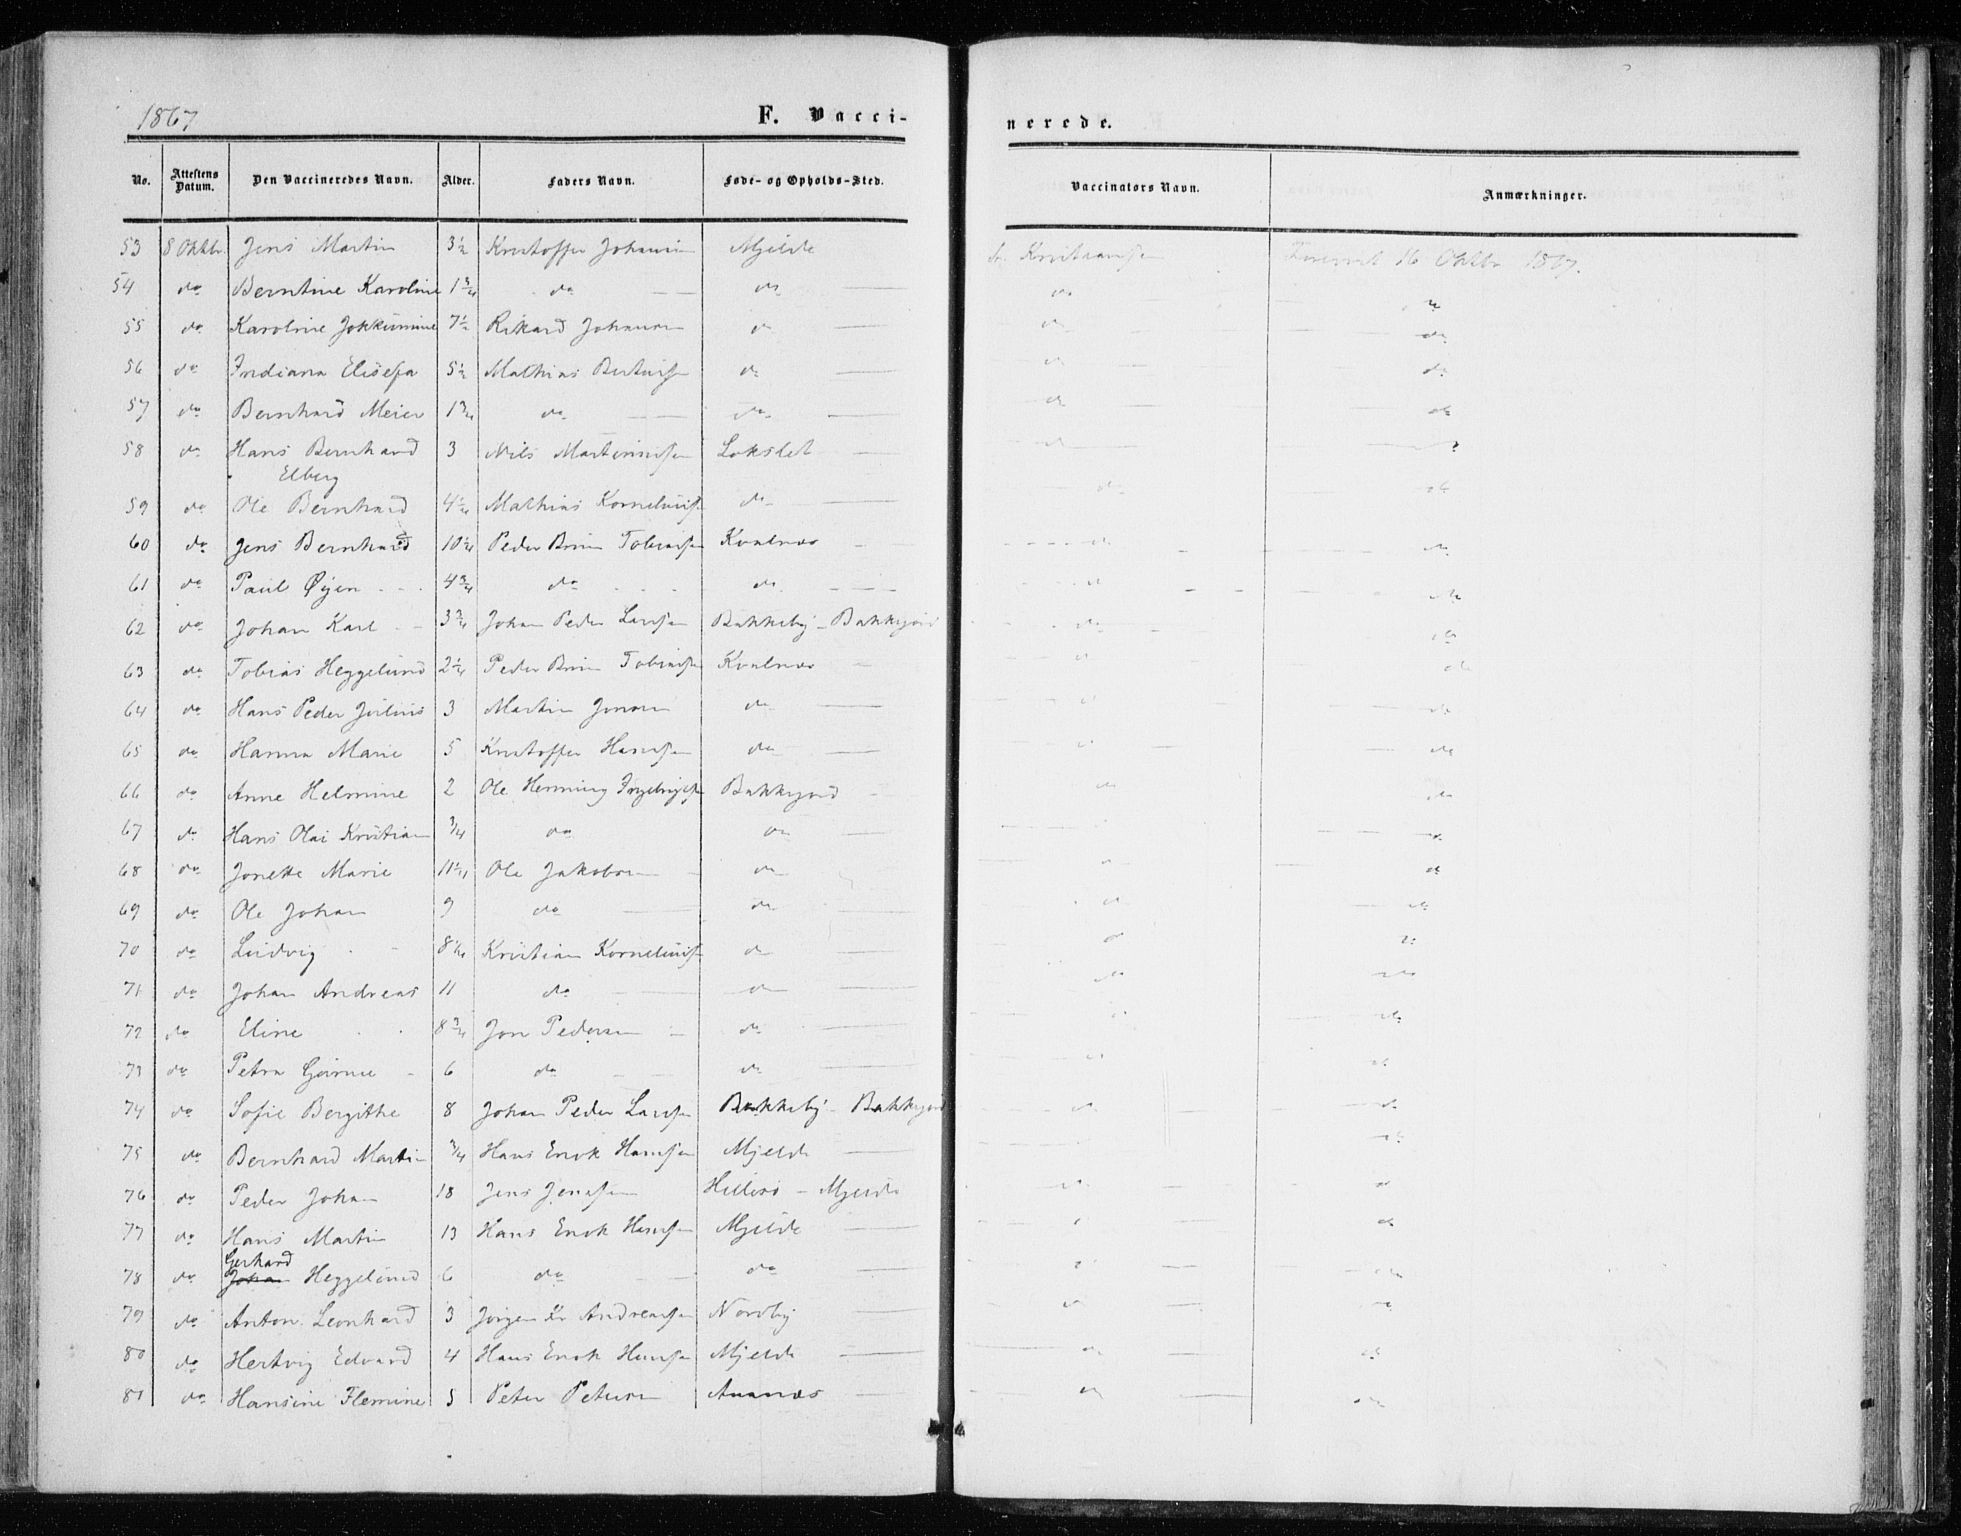 1867
F. Vacci-
nerede.
No. Attestens Datum. Den Vaccineredes Navn. Alder. Faders Navn. Føde- og Opholds-Sted. Vaccinators Navn. Anmærkninger.
53 8 Oktbr Jens Martin 3½ Kristoffer Johansen Mjelde Kristiansen 16 Oktbr 1867.
54 do Berntine Karoline 1¾ do do do do
55 do Karoline Jokkumine 7½ Rikard Johansen do do do
56 do Indiana Elisefa 5½ Mathias do do do
57 do Bernhard Meier 1¾ do do do do
58 do Hans Bernhard 3 Nils Martinussen Lokslet do
Elberg
59 do Ole Bernhard 4¼ Mathias Korneliussen do do do
60 do Jens Bernhard 10¼ Peder Brun Tobiassen Kvalnæs do do
61 do Paul Øyen 4¾ do do do do
62 do Johan Karl 3¾ Johan Peder Larsen Bakkeby - Bakkejord do do
63 do Tobias Heggelund 2¼ Peder Brun Tobiassen Kvalnæs do do
64 do Hans Peder Julius 3 Martin Jensen do do do
65 do Hanna Marie 5 Kristoffer Hansen do do do
66 do Anne Helmine 2 Ole Henning Ingebrigtsen Bakkejord do do
67 do Hans Olai Kristian ¾ do do do do
68 do Jonette Marie 11 Ole Jakobsen do do do
69 do Ole Johan 9 do do do do
70 do Ludvig 8 Kristian Korneliussen do do do
71 do Johan Andreas 11 do do do do
72 do Eline 8¾ Jon Pedersen do do do
73 do Petra 6 do do do do
74 do Sofie Bergithe 8 Johan Peder Larsen Bakkeby - Bakkejord do do
75 do Bernhard Martin ¾ Hans Enok Hansen Mjelde do
76 do Peder Johan 18 Jens Jensen Hillesø - Mjelde do do
77 do Hans Martin 13 Hans Enok Hansen Mjelde do do
Gerhard
78 do Johan Heggelund 6 do do do do
79 do Anton Leonhard 3 Jørgen Kr Andreassen Nordby do do
80 do Hertvig Edvard 4 Hans Enok Hansen Mjelde do do
81 do Hansine Flemine 5 Peter Petersen do do